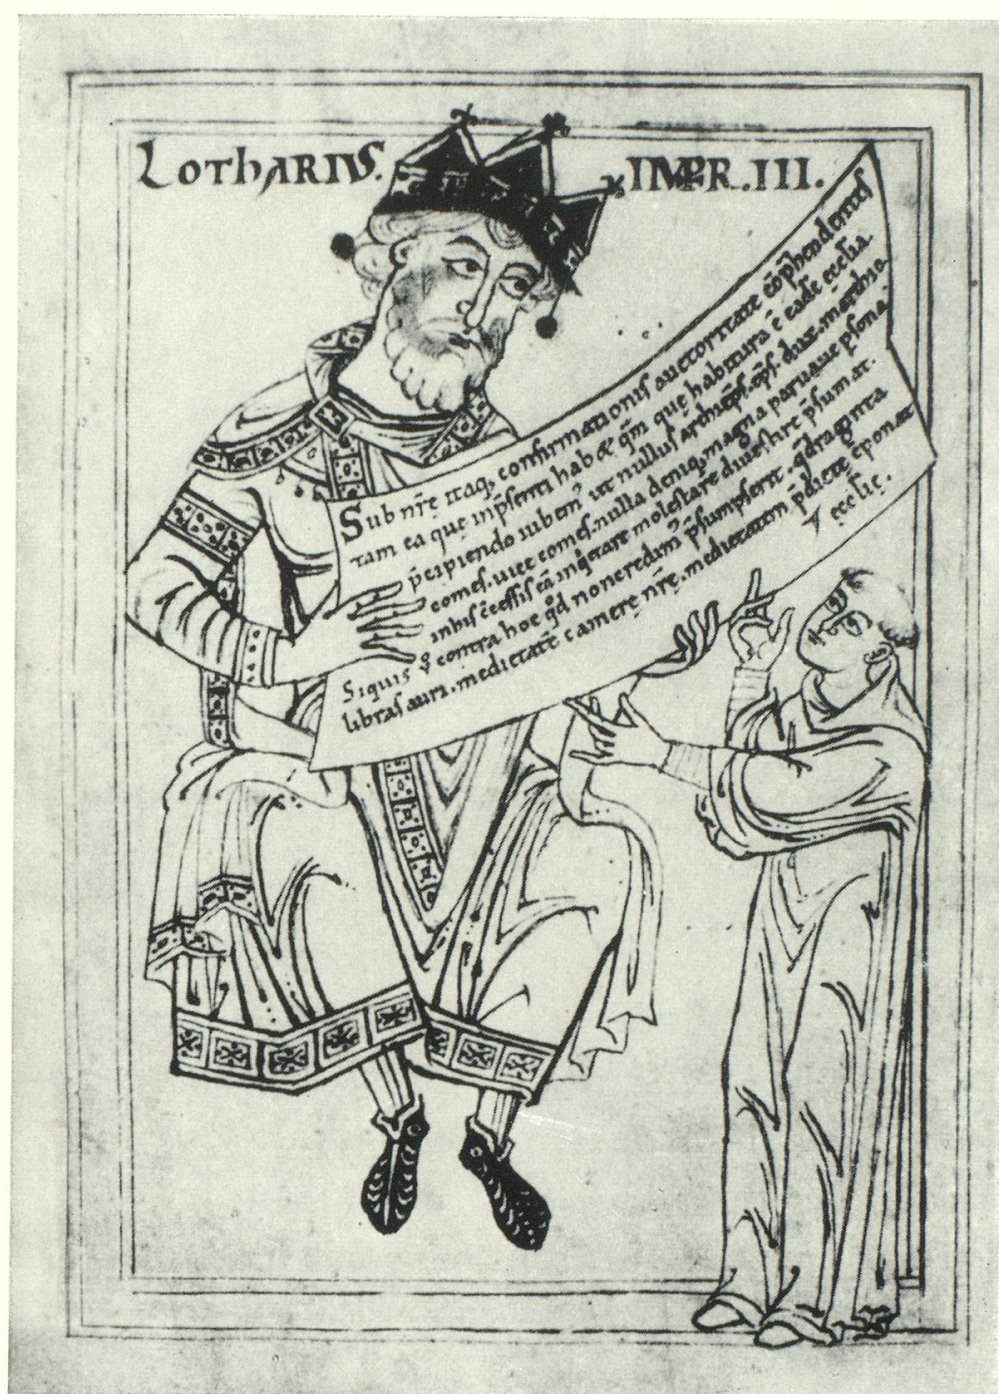 LOTHARIUS. IMPR. III.
Sub nr̄ę itaq; confirmationis auctoritate cōp̄hendentes
tam ea quę inp̄senti hab& q̄m quę habitura ē eadē ecclia.
p̄cipiendo iubem᷒ ut nullus archiep̄s. ep̄s. dux. marchio.
comes. vice comes. nulla deniq; magna paruaue p̄sona
molestare p̄sumat.
Siquis contra hoc qd̄ non credim᷒ p̄sumpserit. q̄draginta
libras auri. medietatē camerę nr̄ę. medietatem p̄dictę cponat
ęcclię.